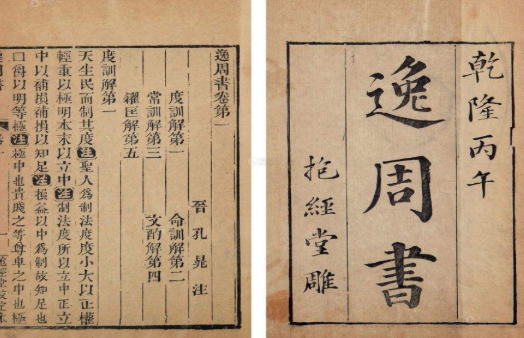 乾隆丙午
逸周書
抱經堂雕
逸周書卷第一
晉 孔晁 注
度訓解第一 命訓解第二
常訓解第三 文酌解第四
糴匡解第五
度訓解第一
天生民而制其度注聖人爲制法度度小大以正權
輕重以極明本末以立中注制法度所以立中正立
中以補損補損以知足注損益以中爲制故知足也
口爵以明等極注極中也貴賤之等尊卑之中也極